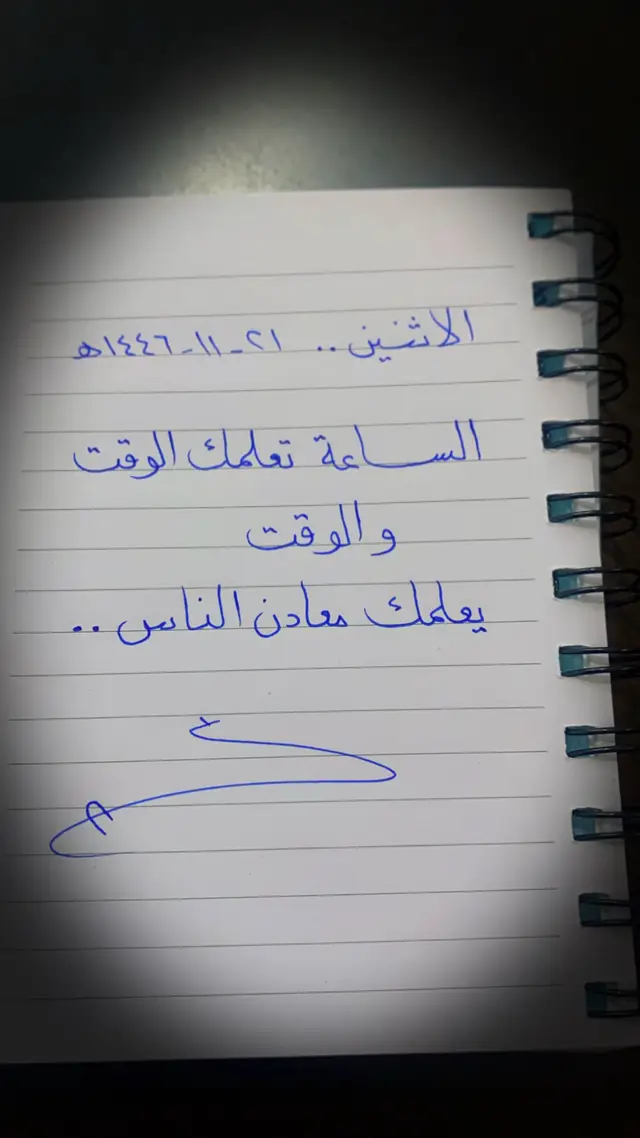 الاثنين .. ٢١-١١-١٤٤٦هـ
الساعة تعلمك الوقت
والوقت
يعلمك معادن الناس ..